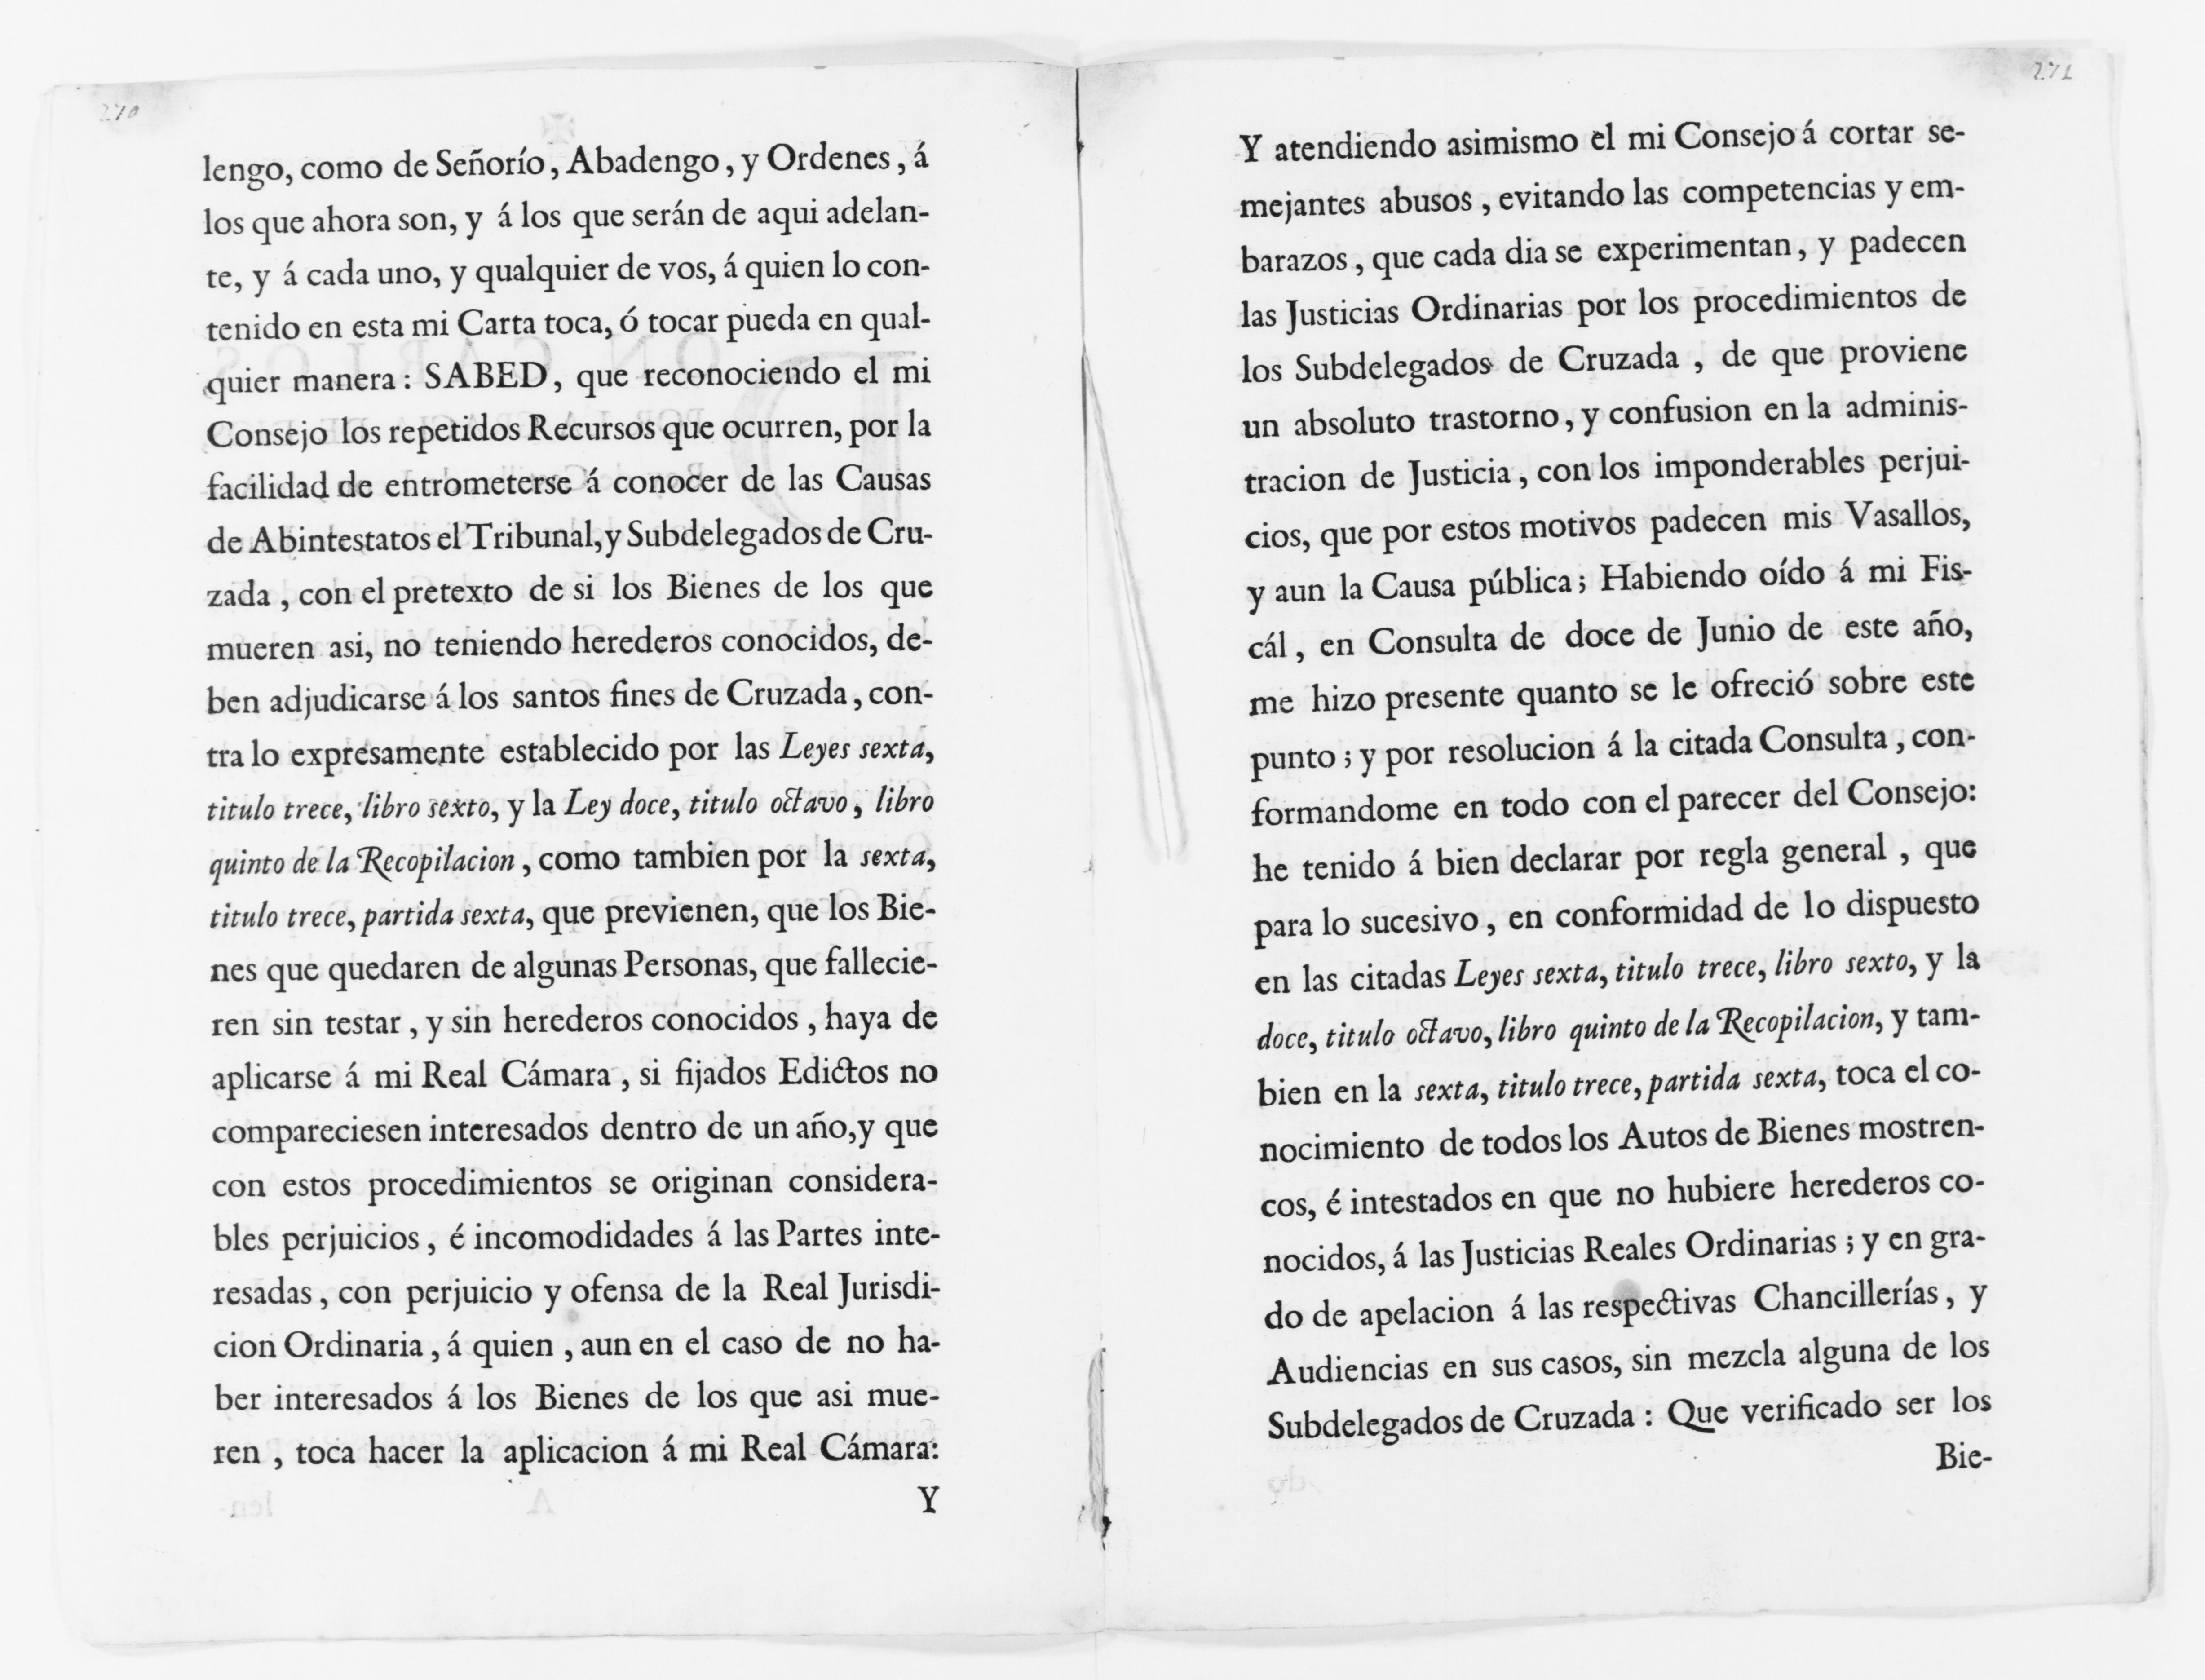 270
lengo, como de Señorío, Abadengo, y Ordenes, á
los que ahora son, y á los que serán de aqui adelan-
te, y á cada uno, y qualquier de vos, á quien lo con-
tenido en esta mi Carta toca, ó tocar pueda en qual-
quier manera: SABED, que reconociendo el mi
Consejo los repetidos Recursos que ocurren, por la
facilidad de entrometerse á conocer de las Causas
de Abintestatos el Tribunal, y Subdelegados de Cru-
zada, con el pretexto de si los Bienes de los que
mueren asi, no teniendo herederos conocidos, de-
ben adjudicarse á los santos fines de Cruzada, con-
tra lo expresamente establecido por las Leyes sexta,
titulo trece, libro sexto, y la Ley doce, titulo octavo, libro
quinto de la Recopilacion, como tambien por la sexta,
titulo trece, partida sexta, que previenen, que los Bie-
nes que quedaren de algunas Personas, que fallecie-
ren sin testar, y sin herederos conocidos, haya de
aplicarse á mi Real Cámara, si fijados Edictos no
compareciesen interesados dentro de un año, y que
con estos procedimientos se originan considera-
bles perjuicios, é incomodidades á las Partes inte-
resadas, con perjuicio y ofensa de la Real Jurisdi-
cion Ordinaria, á quien, aun en el caso de no ha-
ber interesados á los Bienes de los que asi mue-
ren, toca hacer la aplicacion á mi Real Cámara:
Y
271
Y atendiendo asimismo el mi Consejo á cortar se-
mejantes abusos, evitando las competencias y em-
barazos, que cada dia se experimentan, y padecen
las Justicias Ordinarias por los procedimientos de
los Subdelegados de Cruzada, de que proviene
un absoluto trastorno, y confusion en la adminis-
tracion de Justicia, con los imponderables perjui-
cios, que por estos motivos padecen mis Vasallos,
y aun la Causa pública; Habiendo oído á mi Fis-
cál, en Consulta de doce de Junio de este año,
me hizo presente quanto se le ofreció sobre este
punto; y por resolucion á la citada Consulta, con-
formandome en todo con el parecer del Consejo:
he tenido á bien declarar por regla general, que
para lo sucesivo, en conformidad de lo dispuesto
en las citadas Leyes sexta, titulo trece, libro sexto, y la
doce, titulo octavo, libro quinto de la Recopilacion, y tam-
bien en la sexta, titulo trece, partida sexta, toca el co-
nocimiento de todos los Autos de Bienes mostren-
cos, é intestados en que no hubiere herederos co-
nocidos, á las Justicias Reales Ordinarias; y en gra-
do de apelacion á las respectivas Chancillerías, y
Audiencias en sus casos, sin mezcla alguna de los
Subdelegados de Cruzada: Que verificado ser los
Bie-